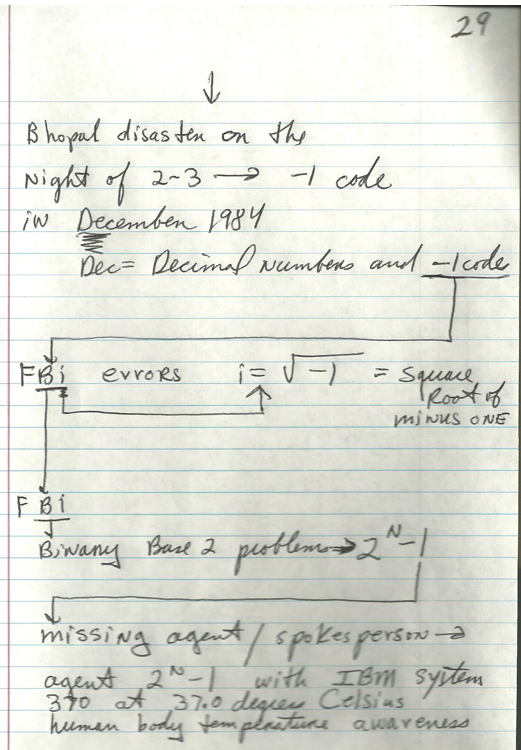 29
Bhopal disaster on the
Night of 2-3 → -1 code
in December 1984
Dec = Decimal Numbers and -1 code
FBi errors i = √-1 = Square
Root of
MINUS ONE
F Bi
Binary Base 2 problems → 2^N-1
missing agent / spokesperson →
agent 2^N-1 with IBM System
370 at 37.0 degrees Celsius
human body temperature awareness